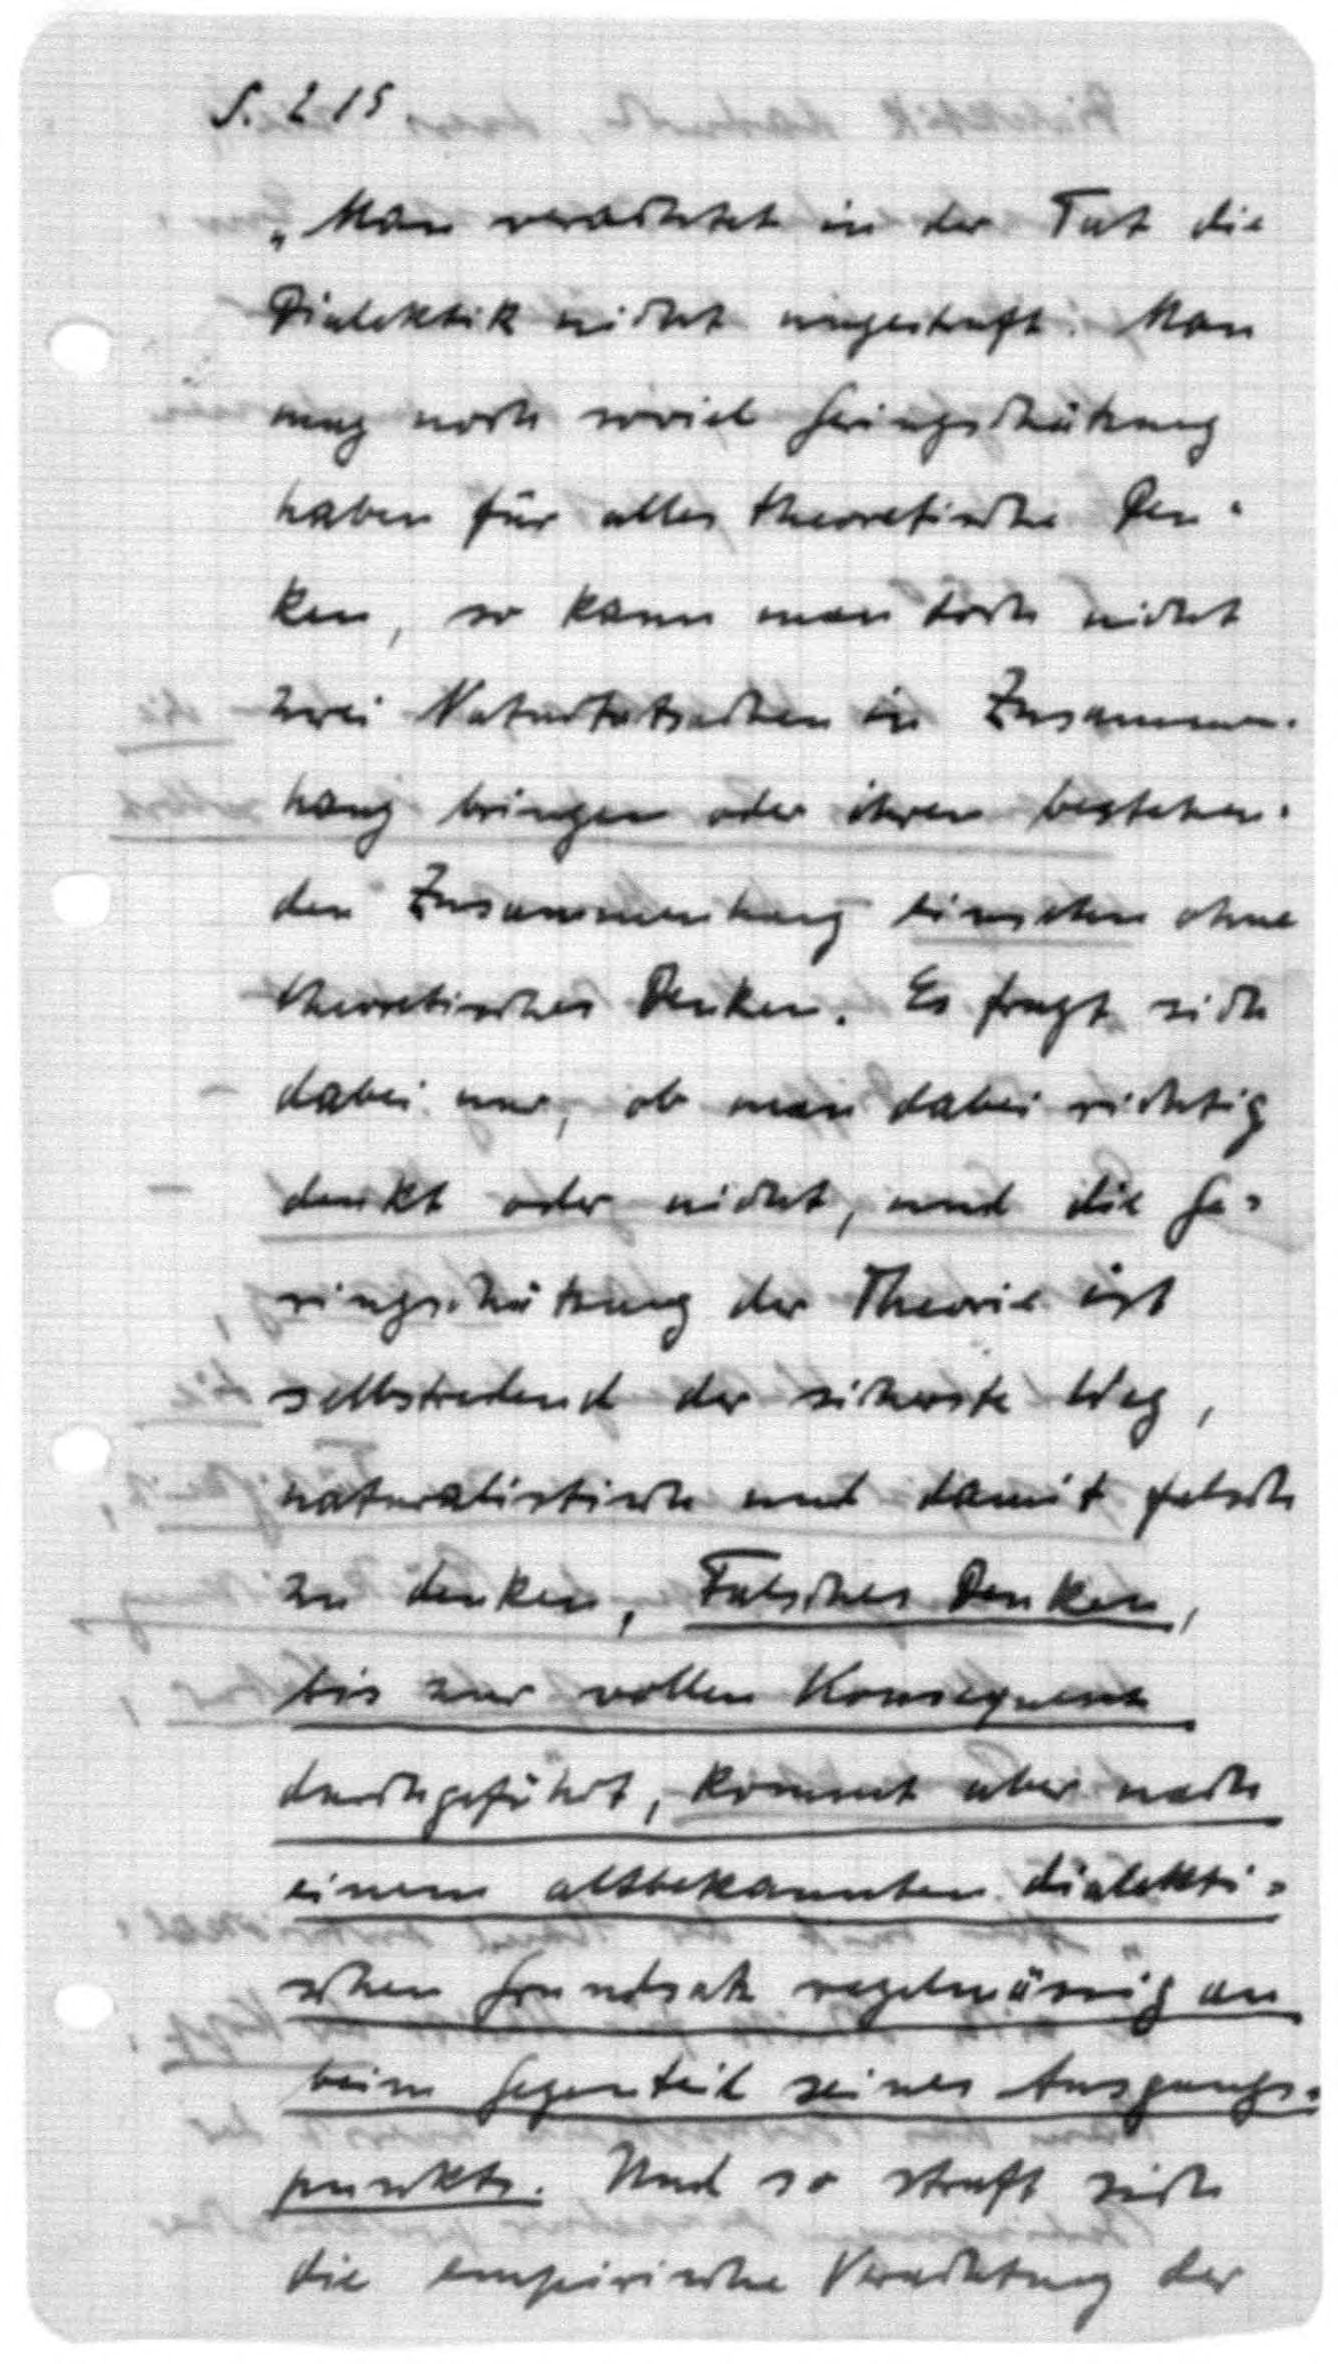 S. 215
„Man verachtet in der Tat die
Dialektik nicht ungestraft. Man
mag noch soviel Geringschätzung
haben für alles theoretische Den-
ken, so kann man doch nicht
zwei Naturtatsachen in Zusammen-
hang bringen oder ihren bestehen-
den Zusammenhang einsehen ohne
theoretisches Denken. Es fragt sich
dabei nur, ob man dabei richtig
denkt oder nicht, und die Ge-
ringschätzung der Theorie ist
selbstredend der sicherste Weg,
naturalistisch und damit falsch
zu denken. Falsches Denken,
bis zur vollen Konsequenz
durchgeführt, kommt aber nach
einem altbekannten dialekti-
schen Grundsatz regelmässig an
beim Gegenteil seines Ausgangs-
punkts. Und so straft sich
die empirische Verachtung der